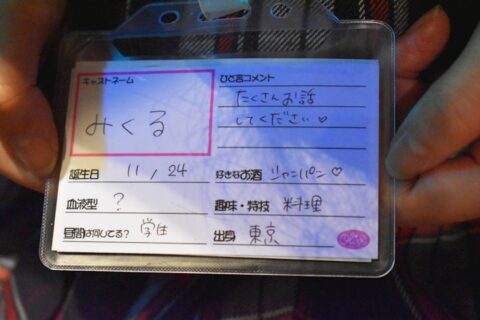 キャストネーム
みくる
ひと言コメント
たくさんお話
してください♡
誕生日 11/24
好きなお酒 シャンパン♡
血液型 ?
趣味・特技 料理
昼間は何してる? 学生
出身 東京